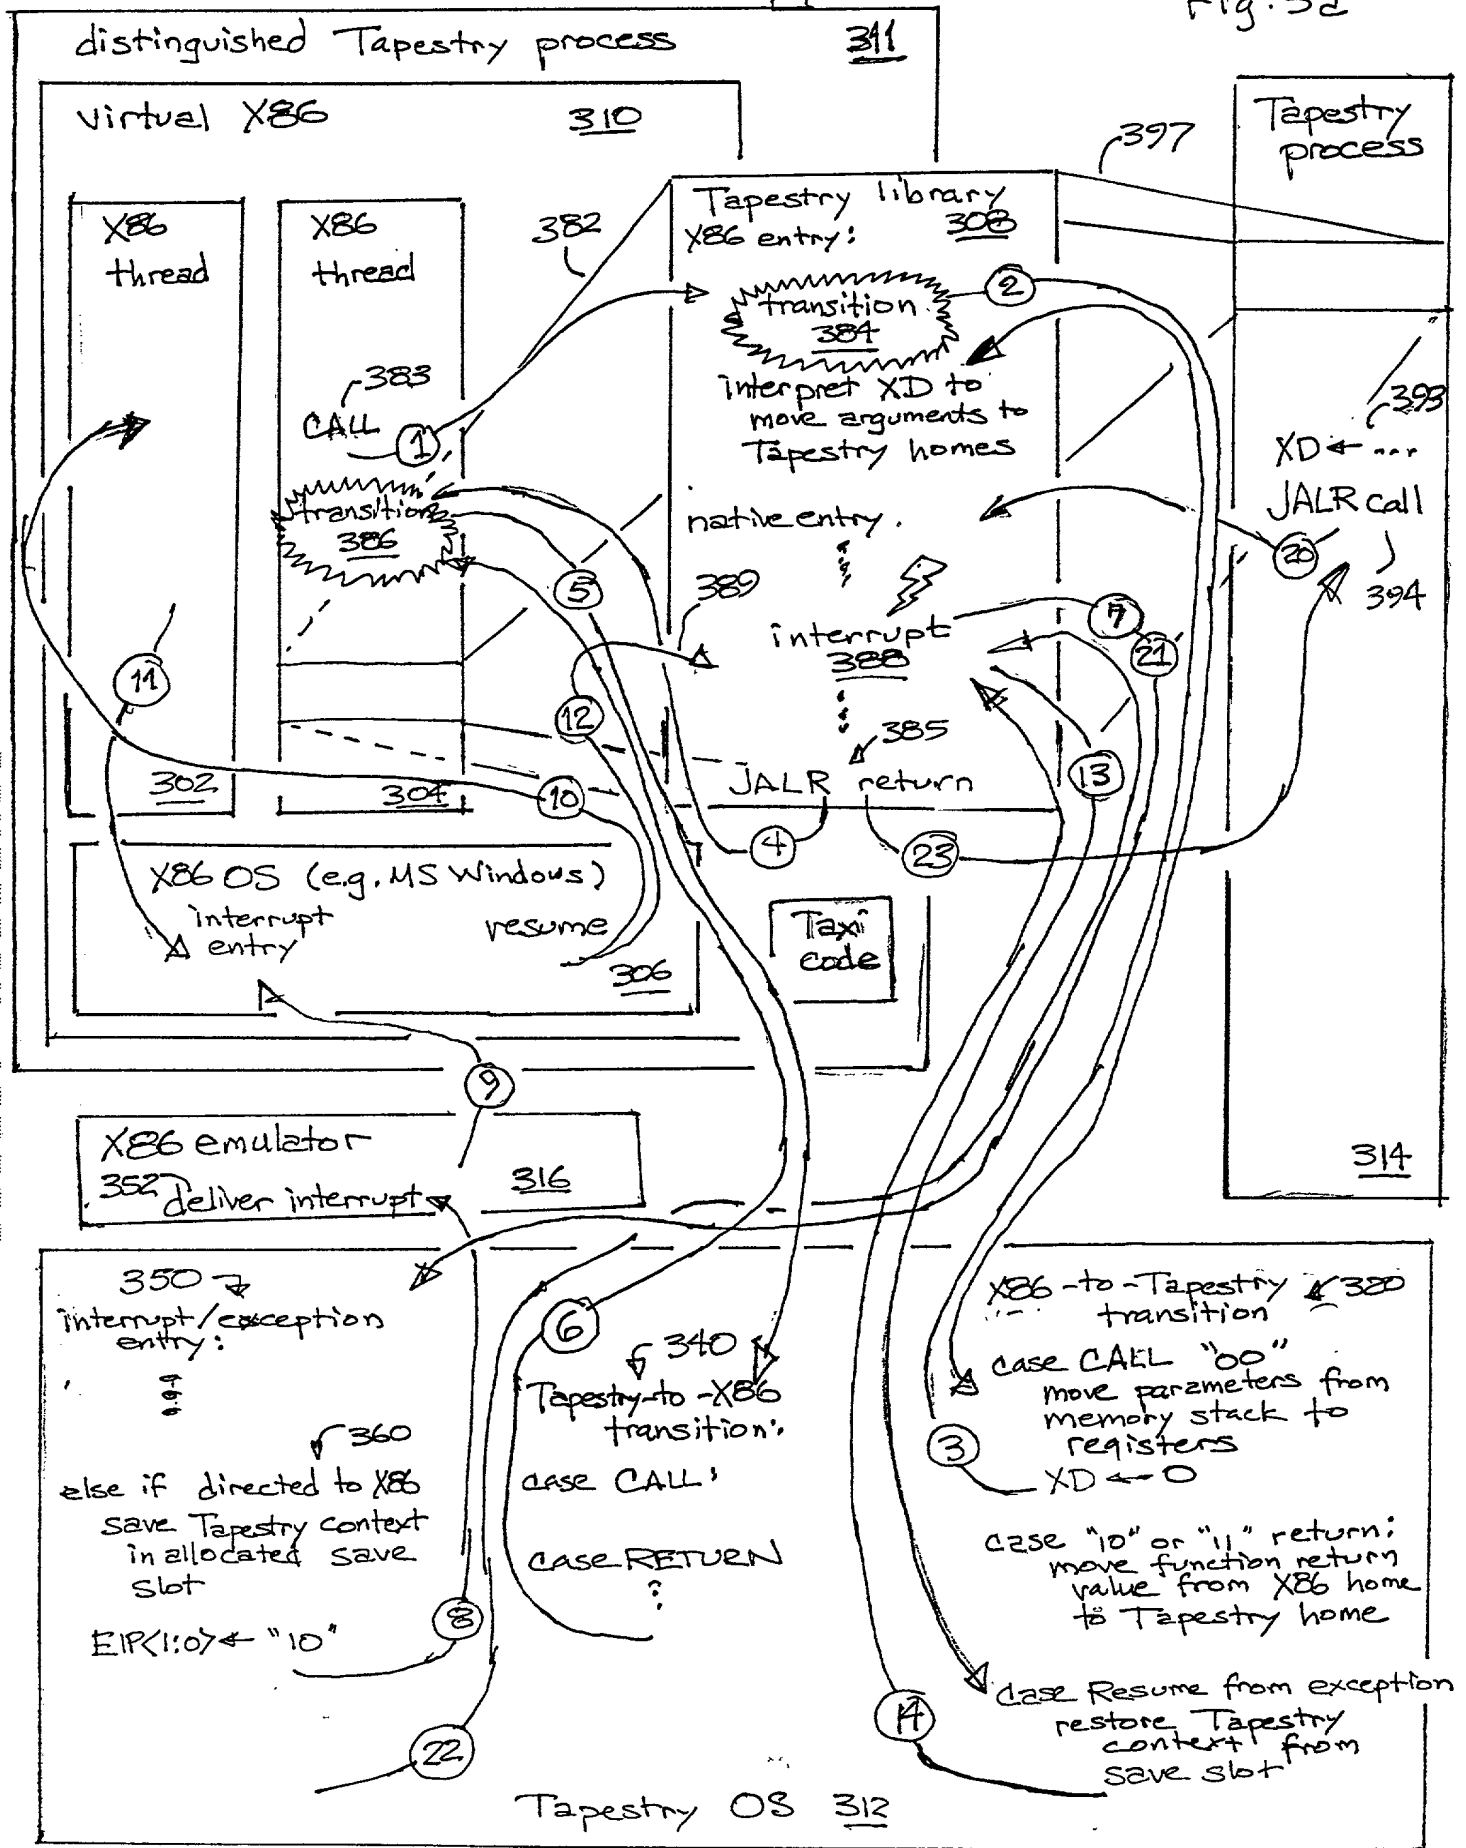 Fig. 3a
distinguished Tapestry process 311
virtual X86 310
X86
thread
302
X86
thread
382
383
CALL 1
transition
386
304
Tapestry library
308
X86 entry:
transition
384
2
interpret XD to
move arguments to
Tapestry homes
native entry.
5
389
interrupt
388
7
21
11
12
385
10
JALR return
13
4
23
397
Tapestry
process
393
XD ← ...
JALR call
20
394
314
X86 OS (e.g. MS Windows)
interrupt
entry
resume
306
Taxi
code
9
X86 emulator
352 deliver interrupt
316
350
interrupt/exception
entry:
360
else if directed to X86
save Tapestry context
in allocated save
slot
EIP<1:0> ← "10"
8
22
6
340
Tapestry-to-X86
transition:
case CALL:
case RETURN
X86-to-Tapestry 320
transition
case CALL "00"
move parameters from
memory stack to
registers
3
XD ← 0
case "10" or "11" return:
move function return
value from X86 home
to Tapestry home
case Resume from exception
restore Tapestry
context from
save slot
14
Tapestry OS 312